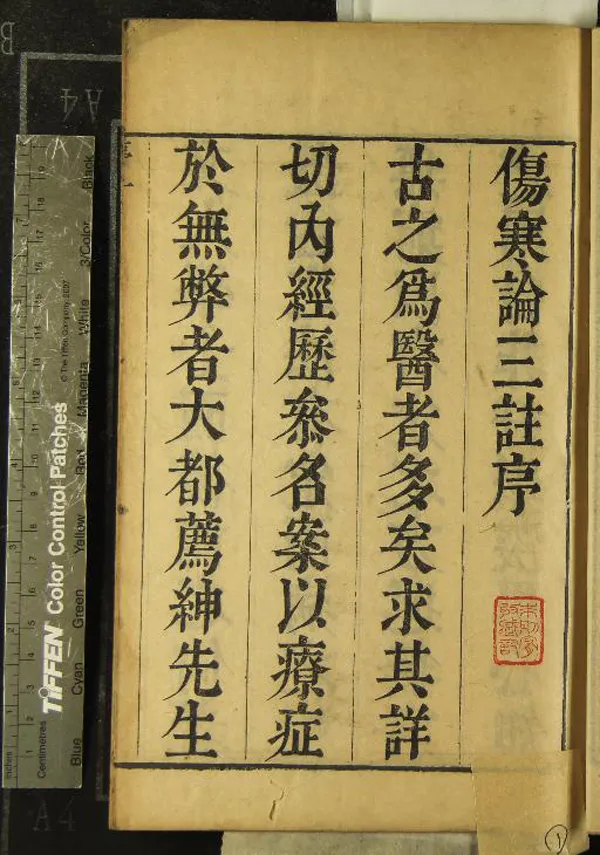 傷寒論三註序
古之爲醫者多矣求其詳
切內經歷叅名案以療症
於無弊者大都薦紳先生
B
A4
A4
Inches
Centimetres
TIFFEN Color Control Patches
© The Tiffen Company, 2007
Blue
Cyan
Green
Yellow
Red
Magenta
White
3/Color
Black
1